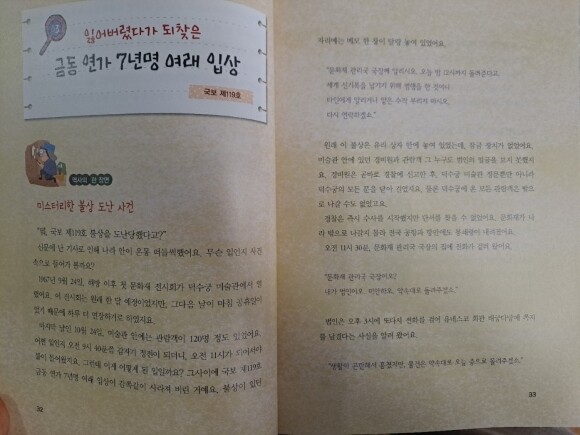 잃어버렸다가 되찾은
금동 연가 7년명 여래 입상
국보 제119호
역사의 한 장면
미스터리한 불상 도난 사건
"뭐, 국보 제119호 불상을 도난당했다고?"
신문에 난 기사로 인해 나라 안이 온통 떠들썩했어요. 무슨 일인지 사건
속으로 들어가 볼까요?
1967년 9월 24일, 해방 이후 첫 문화재 전시회가 덕수궁 미술관에서
열렸어요. 이 전시회는 원래 한 달 예정이었지만, 그다음 날이 마침 공휴일이
있기 때문에 하루 더 연장하기로 하였지요.
마지막 날인 10월 24일, 미술관 안에는 관람객이 120명 정도 있었어요.
어쩐 일인지 오전 9시 40분쯤 갑자기 정전이 되더니, 오전 11시가 되어서야
불이 들어왔지요. 그런데 이게 어떻게 된 일일까요? 그사이에 국보 제119호
금동 연가 7년명 여래 입상이 감쪽같이 사라져 버린 거예요. 불상이 있던
32
자리에는 메모 한 장이 달랑 놓여 있었어요.
"문화재 관리국 국장께 알리시오. 오늘 밤 12시까지 돌려준다고.
세계 신기록을 남기기 위해
타인에게 알리거나 얕은 수작 부리지 마시오.
다시 연락하겠소."
원래 이 불상은 유리 상자 안에 놓여 있었는데, 잠금 장치가 없었어요.
미술관 안에 있던 경비원과 관람객 그 누구도 범인의 얼굴을 보지 못했지
요. 경비원은 곧바로 경찰에 신고한 후, 덕수궁 미술관 정문뿐만 아니라
덕수궁의 모든 문을 닫아 걸었지요. 물론 덕수궁에 온 모든 관람객은 밖으
로 나갈 수도 없었고요.
경찰은 즉시 수사를 시작했지만 단서를 찾을 수 없었어요. 문화재가 나
라 밖으로 나갈지 몰라 전국 공항과 항만에도 통제령이 내려졌어요.
오전 11시 30분, 문화재 관리국 국장의 집에 전화가 걸려 왔어요.
"문화재 관리국 국장이오?
내가 범인이오. 미안하오. 약속대로 돌려주겠소."
범인은 오후 3시에 또다시 전화를 걸어 유네스코 회관 화장실에 쪽지
를 남겼다는 사실을 알려 왔어요.
"생활이 곤란해서 훔쳤지만, 물건은 약속대로 오늘 중으로 돌려주겠소."
33